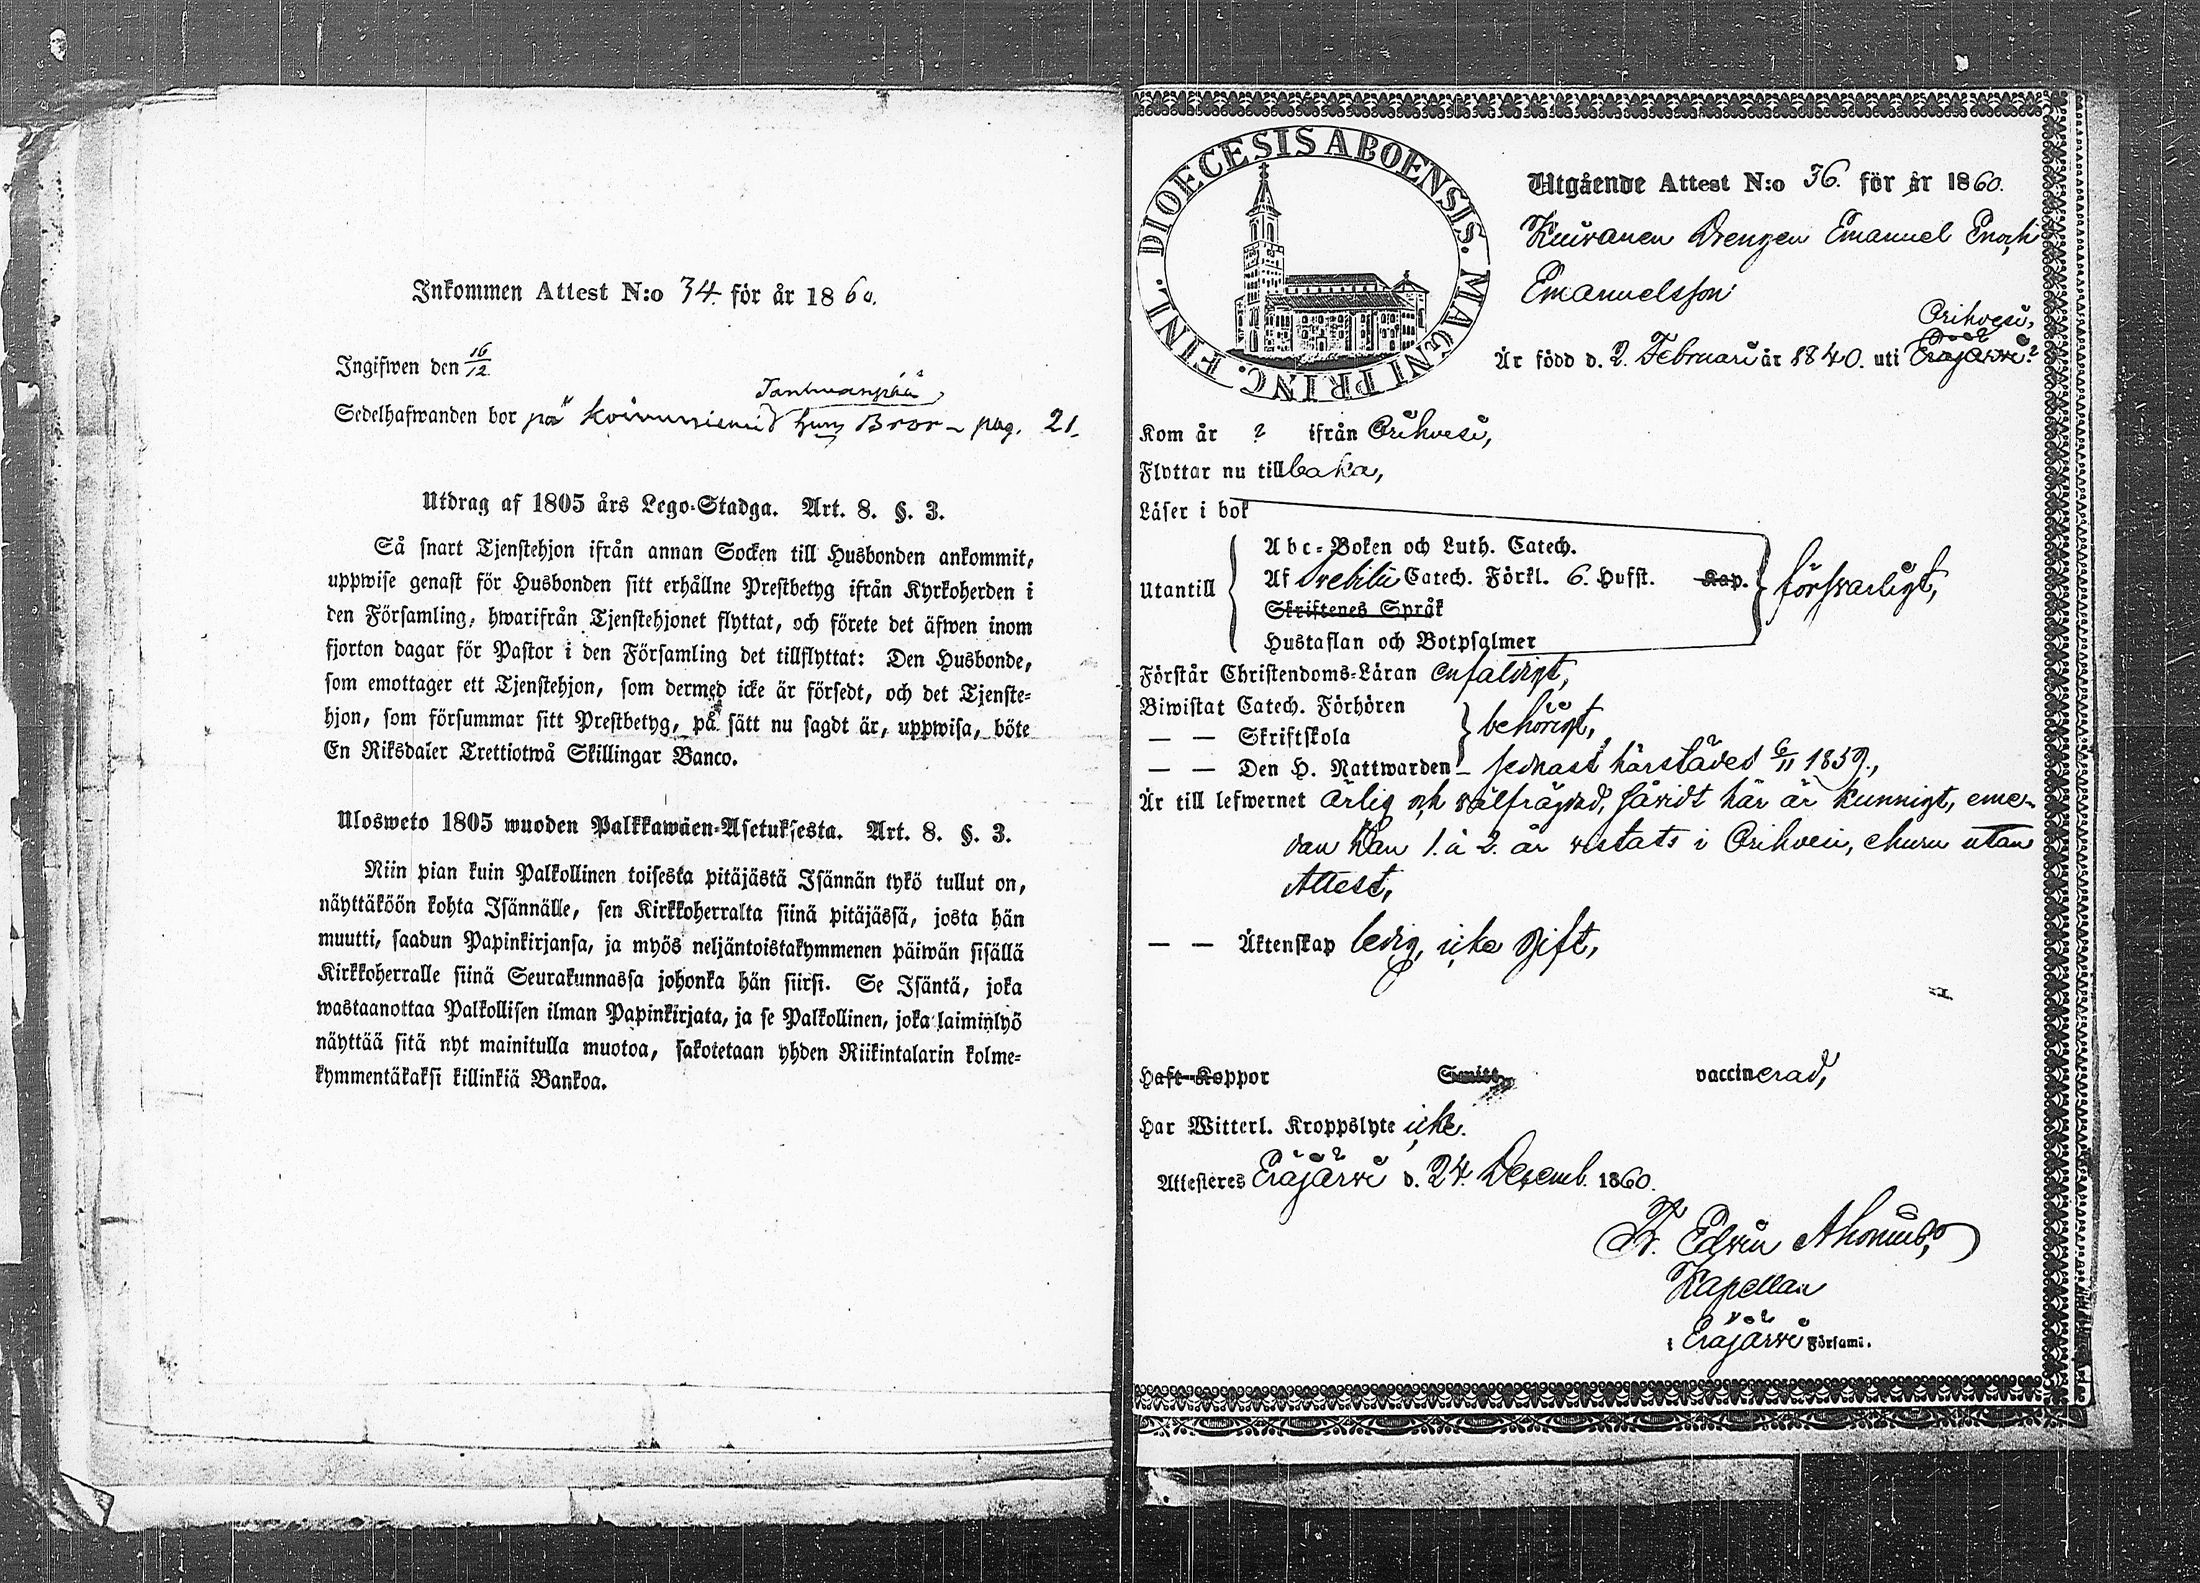 Inkommen Attest N:o 34. för år 1860.
Ingifwen den 16/12
Tanhuanpää
Sedelhafwanden bor på Koivuniemi hos Bror – pag. 21.
Utdrag af 1805 års Lego-Stadga. Art. 8. §. 3.
Så snart Tjenstehjon ifrån annan Socken till Husbonden ankommit,
uppwise genast för Husbonden sitt erhållne Prestbetyg ifrån Kyrkoherden i
den Församling, hwarifrån Tjenstehjonet flyttat, och förete det äfwen inom
fjorton dagar för Pastor i den Församling det tillflyttat: Den Husbonde,
som emottager ett Tjenstehjon, som dermed icke är försedt, och det Tjenste-
hjon, som försummar sitt Prestbetyg, på sätt nu sagdt är, uppwisa, böte
En Riksdaler Trettiotwå Skillingar Banco.
Ulosweto 1805 wuoden Palkkawäen-Asetuksesta. Art. 8. §. 3.
Niin pian kuin Palkollinen toisesta pitäjästä Isännän tykö tullut on,
näyttäköön kohta Isännälle, sen Kirkkoherralta siinä pitäjässä, josta hän
muutti, saadun Papinkirjansa, ja myös neljäntoistakymmenen päiwän sisällä
Kirkkoherralle siinä Seurakunnassa johonka hän siirsi. Se Isäntä, joka
wastaanottaa Palkollisen ilman Papinkirjata, ja se Palkollinen, joka laiminlyö
näyttää sitä nyt mainitulla muotoa, sakotetaan yhden Riikintalarin kolme-
kymmentäkaksi killinkiä Bankoa.
DIOECESIS ABOENSIS. MAGNI PRINC. FINL.
Utgående Attest N:o 36. för år 1860.
Kuivanen Drengen Emanuel Enoch
Emanuelsson
Orihvesi,
Är född d. 2. Februari år 1840. uti Eräjärvi.
Kom år ? ifrån Orihvesi,
Flyttar nu tillbaka,
Läser i bok
Abc-Boken och Luth. Catech.
Utantill Af Svebilii Catech. Förkl. 6. Hufst. Kap. försvarligt,
Skriftenes Språk
Hustaflan och Botpsalmer
Förstår Christendoms-Läran enfaldigt,
Biwistat Catech. Förhören
— — Skriftskola behörigt,
— — Den H. Nattwarden – sednast härstädes 6/11 1859.,
Är till lefwernet ärlig och välfrägdad, såvidt här är kunnigt, eme-
dan Han 1. à 2. år vistats i Orihvesi, churu utan
Attest,
— — Äktenskap ledig, icke gift,
Haft Koppor Smitt vaccinerad,
Har Witterl. Kroppslyte icke.
Attesteres Eräjärvi d. 24. Decemb. 1860.
Fr. Edvin Ahonius,
Kapellan
i Eräjärvi Församl.